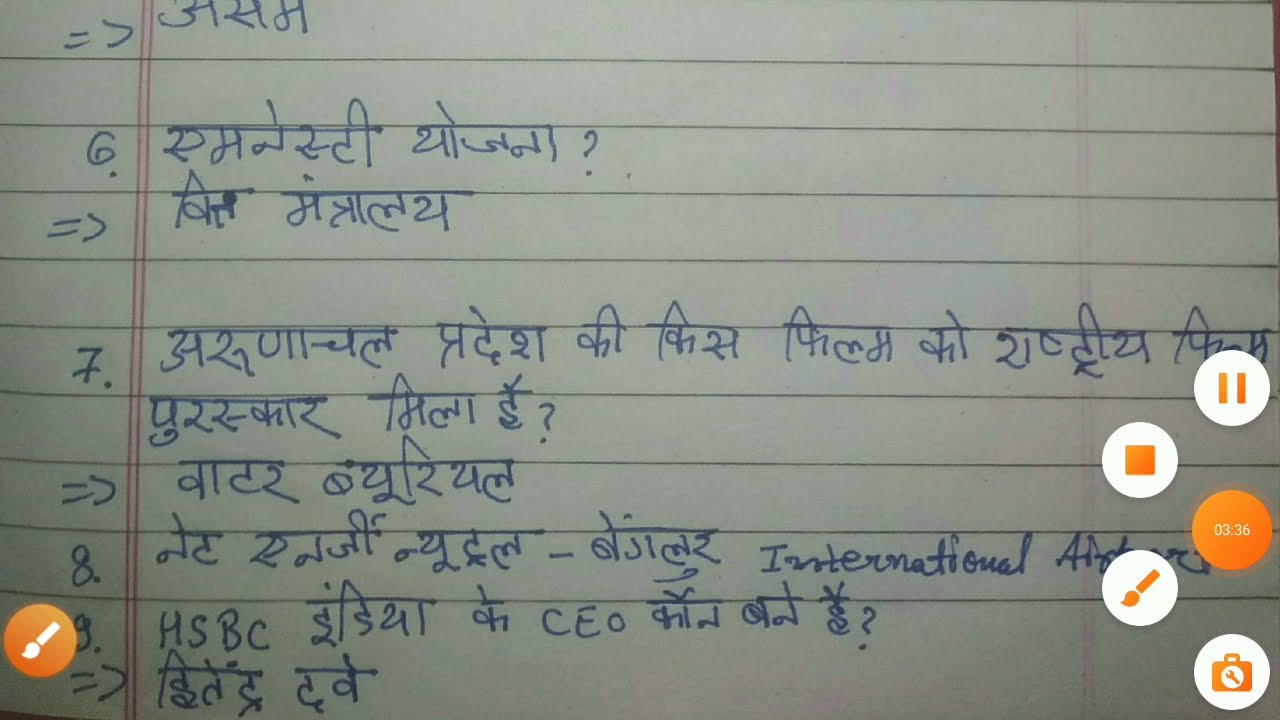 => असम
6. एमनेस्टी योजना ?
=> वित्त मंत्रालय
7. अरूणाचल प्रदेश की किस फिल्म को राष्ट्रीय फिल्म
पुरस्कार मिला है ?
=> वाटर ब्यूरियल
8. नेट एनर्जी न्यूट्रल - बेंगलुर International
9. HSBC इंडिया के CEO कौन बने है ?
=> हितेंद्र दवे
03:36